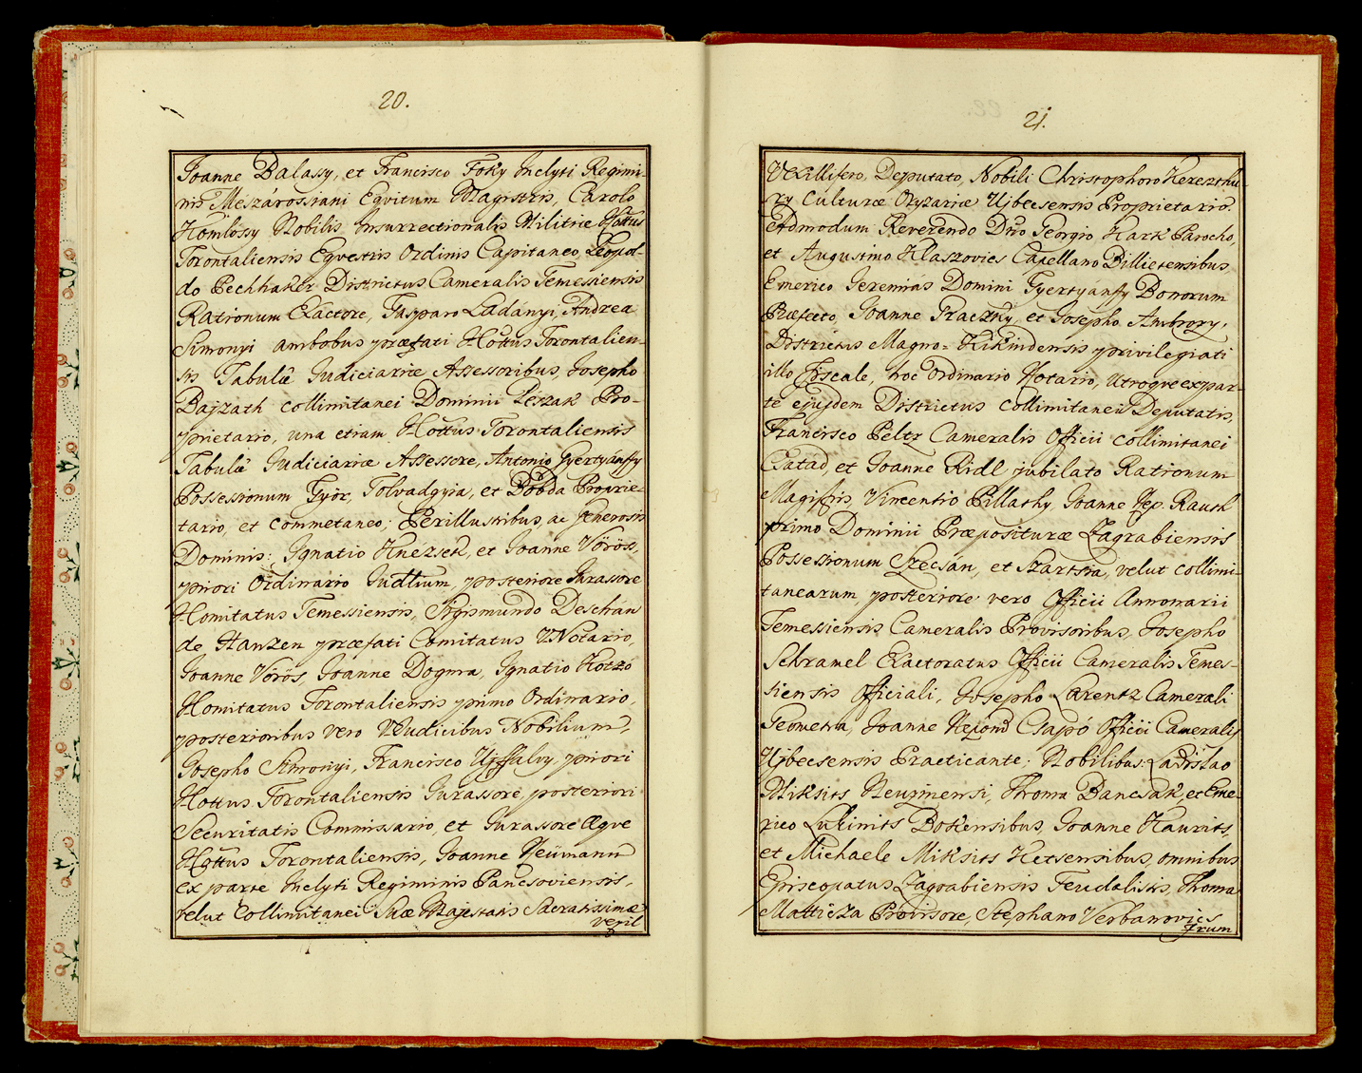 20.
Joanne Balassy, et Francisco Foky Inclyti Regimi-
nis Mészárossiani Equitum Magistris, Carolo
Hömlössy Nobilis Insurrectionalis Militiæ Hottus
Torontaliensis Equestris Ordinis Capitaneo, Leopol-
do Pechhaker Districtus Cameralis Temessiensis
Rationum Exactore, Gasparo Ladányi, Andrea
Simonyi ambobus præfati Hottus Torontalien-
sis Tabulæ Judiciariæ Assessoribus, Josepho
Bajzath collimitanei Dominii Pro-
prietario, una etiam Hottus Torontaliensis
Tabulæ Judiciariæ Assessore, Antonio Gyertyánffy
Possessionum Győr, Tolvadgyia, et Bobda Proprie-
tario, et commetaneo; Perillustribus, ac Generosis
Dominis: Ignatio Knézséh, et Joanne Vörös,
priori Ordinario Judlium, posteriore Jurassore
Comitatus Temessiensis, Sigismundo Deschán
de Hanzen præfati Comitatus VNotario,
Joanne Vörös Joanne Dogma, Ignatio Kotzó
Comitatus Torontaliensis primo Ordinario,
posterioribus vero VJudicibus Nobilium,
Josepho Simonyi, Francisco Ujffalvy, priori
Hottus Torontaliensis Jurassore posteriori
Securitatis Commissario, et Jurassore æque
Hottus Torontaliensis, Joanne Neümann
ex parte Inclyti Regiminis Pancsoviensis,
velut Collimitanei Suæ Majestatis Sacratissimæ
vexil
21.
Vexillifero, Deputato, Nobili Christophoro Kereszthu-
ry Culturæ Oryzariæ Ujbecsensis Proprietario.
Admodum Reverendo Dno Georgio Hark Parocho,
et Augustino Klaszovics Capellano Billietensibus,
Emerico Jeremias Domini Gyertyánffy Bonorum
Præfecto, Joanne Praczky, et Josepho Ambrozy,
Districtus Magno-Kikindensis privilegiati
illo Fiscale, hoc Ordinario Notario, utroque ex par-
te ejusdem Districtus collimitanei Deputatis,
Francisco Peltz Cameralis Officii collimitanei
Csatad, et Joanne Ridl jubilato Rationum
Magistris, Vincentio Pillathy, Joanne Nep. Rauch
primo Dominii Præposituræ Zagrabiensis
Possessionum Szécsán, et Szártsia, velut collimi-
tanearum posteriore vero Officii Annonarii
Temessiensis Cameralis Provisoribus, Josepho
Schramel Exactoratus Officii Cameralis Temes-
siensis Officiali, Josepho Larentz Camerali
Geometra, Joanne Csapó Officii Cameralis
Ujbecsensis Practicante; Nobilibus: Ladislao
Miksits Neuzinensi, Thoma Bancsak, et Eme-
rico Lukinits Botsensibus, Joanne Kaurits,
et Michaele Miksits Ketsensibus, omnibus
Episcopatus Zagrabiensis Feudalistis, Thoma
Matticza Provisore, Stephano Verbanovics
Frum